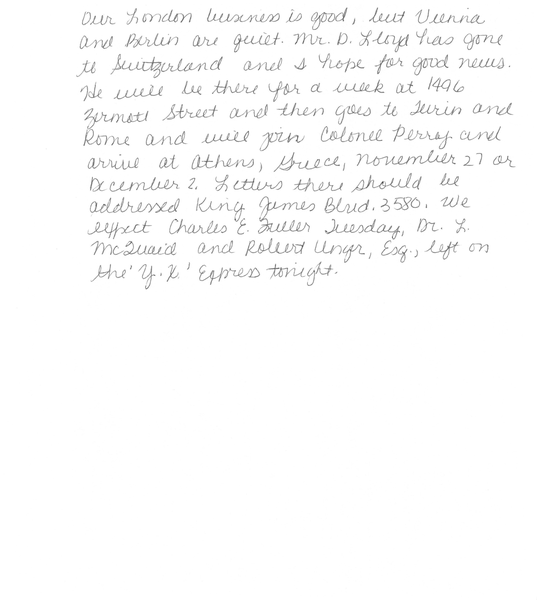 Our London business is good, but Vienna
and Berlin are quiet. Mr. D. Lloyd has gone
to Switzerland and I hope for good news.
He will be there for a week at 1496
Zermott Street and then goes to Turin and
Rome and will join Colonel Perry and
arrive at Athens, Greece, November 27 or
December 2. Letters there should be
addressed King James Blvd. 3580. We
expect Charles E. Fuller Tuesday, Dr. L.
McQuaid and Robert Unger, Esq., left on
the 'Y.X.' Express tonight.